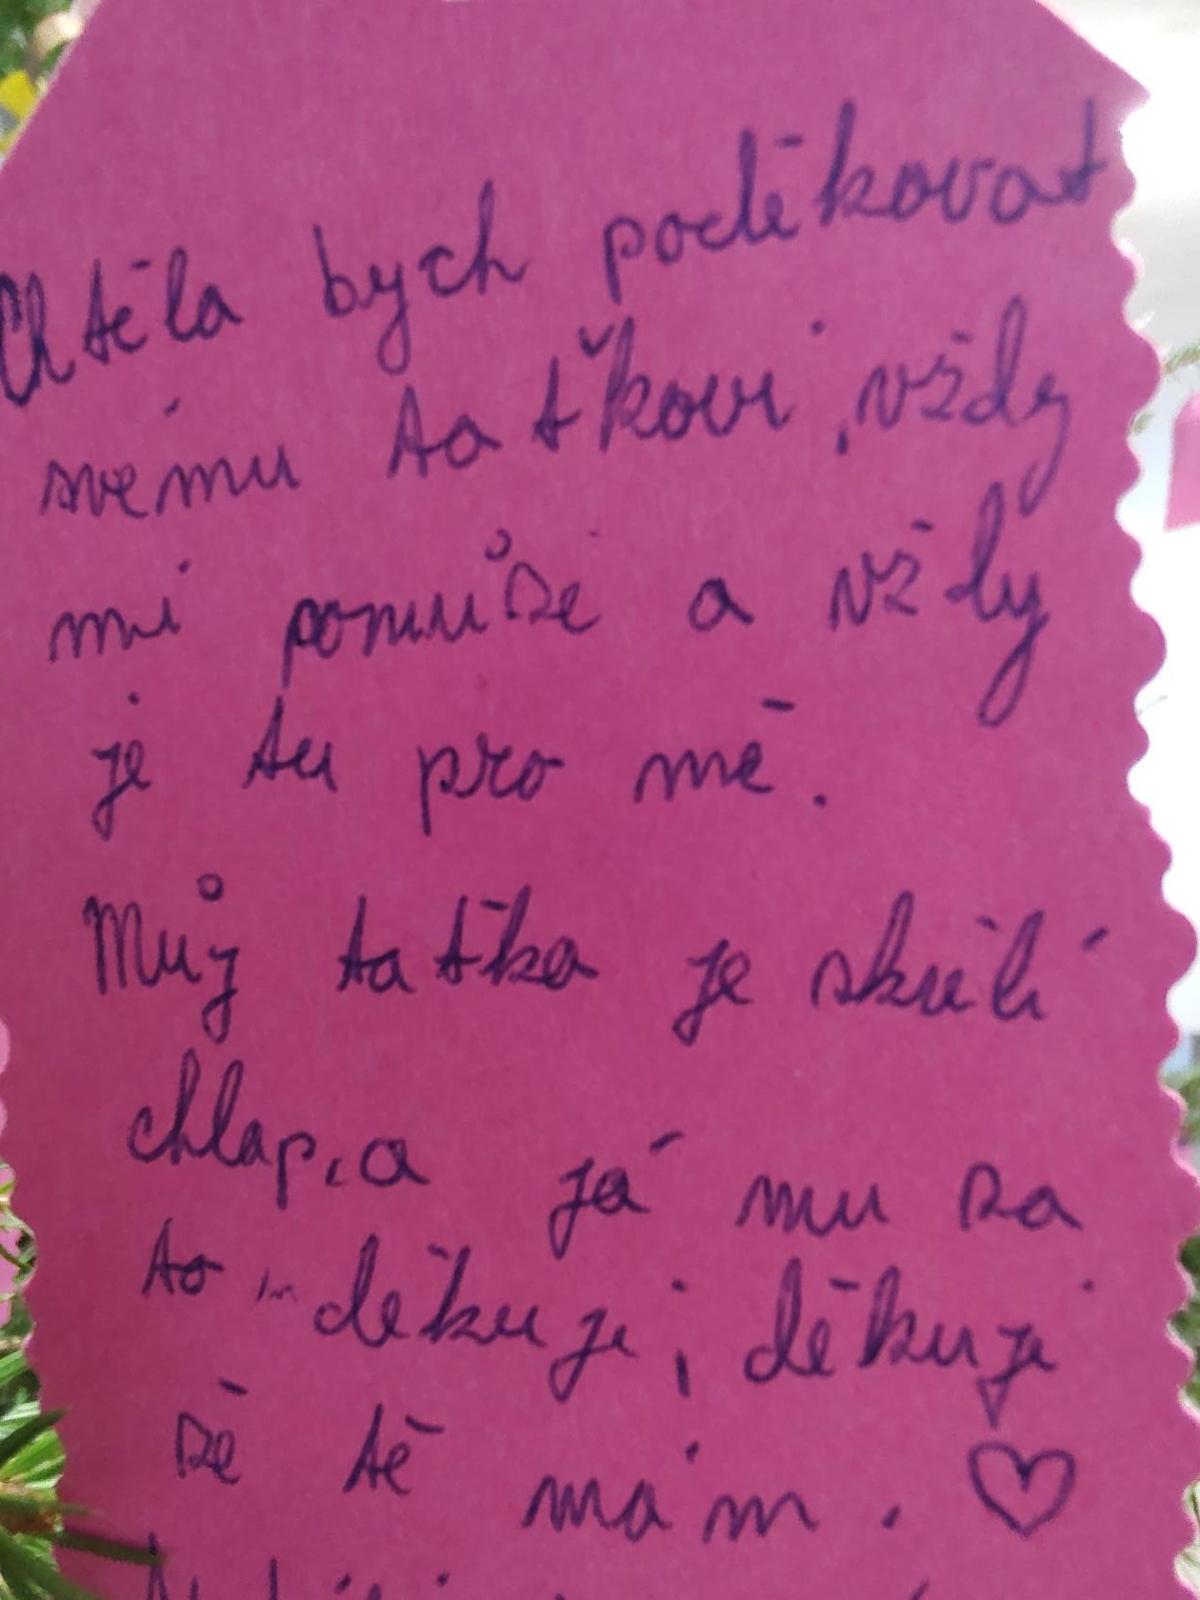 Chtěla bych poděkovat
svému taťkovi, vždy
mi pomůže a vždy
je tu pro mě.
Můj taťka je skvělí
chlap, a já mu za
to děkuji, děkuji
že tě mám. ♡